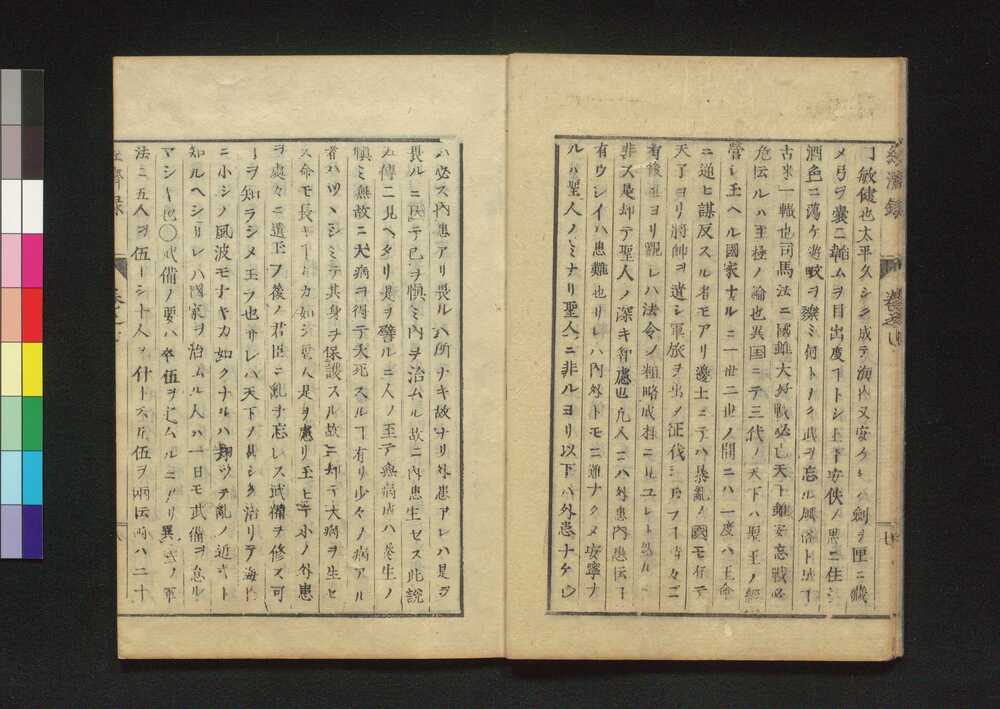 經濟錄
卷之
敏健也太平久シク成テ海内又安ケレハ劍ヲ匣ニ藏
メ弓ヲ囊ニ韜ムヲ目出度トシ上下安佚ノ思ニ住シ
酒色ニ蕩ケ遊敖ヲ樂ミ何トナク武ヲ忘ル風俗ト成
古來一轍也司馬法ニ國雖大好戰必亡天下雖安忘戰必
危ト云ルハ至極ノ論也異国ニテ三代ノ天下ハ聖王ノ經
營シ玉ヘル國家ナルニ一世二世ノ間ニハ一度ハ王命
ニ逆ヒ謀反スル者モアリ邊土ニテハ暴亂ノ國モ有テ
天子ヨリ將帥ヲ遣シ軍旅ヲ出シ征伐シ玉フ
後世ヨリ觀レハ法令ノ粗略成樣ニ見ユレト
非ス是却テ聖人ノ深キ智慮也凡人ニハ外患内患
有ウシイハ患難也サレハ内外トモニ難ナク安寧ナ
ルハ聖人ノミナリ聖人ニ非ルヨリ以下ハ外患ナケ
ハ必ス内患アリ畏ルハ所ナキ故ナリ外患アレハ是ヲ
畏ルニ因テ己ヲ愼ミ内ヲ治ムル故ニ内患生ゼス此說
左傳ニ見ヘタリ是ヲ譬ルニ人ノ至テ無病成ハ養生ノ
愼ミ無故ニ大病ヲ得テ夭死スル有リ少々ノ病アル
者ハツヽシミテ其身ヲ保護スル故ニ却テ大病ヲ生セ
ス命モ長キカ如シ聖人是ヲ慮リ玉ヒテ小ノ外患
ヲ處々ニ遺玉フ後ノ君臣ニ亂ヲ忘レス武備ヲ修ス可
ヲ知ラシメ玉フ也サレハ天下ノ甚シク治リテ海内
ニ小シノ風波モナキカ如クナルハ翔ツテ亂ノ近キト
知ルヘシサレハ國家ヲ治ムル人ハ一日モ武備ヲ怠ル
マシキ也○武備ノ要ハ卒伍ヲ定ムルニアリ異國ノ軍
法ニ五人ヲ伍トシ十人ヲ什ト云伍ヲ兩ト云兩ハ二十
經濟錄